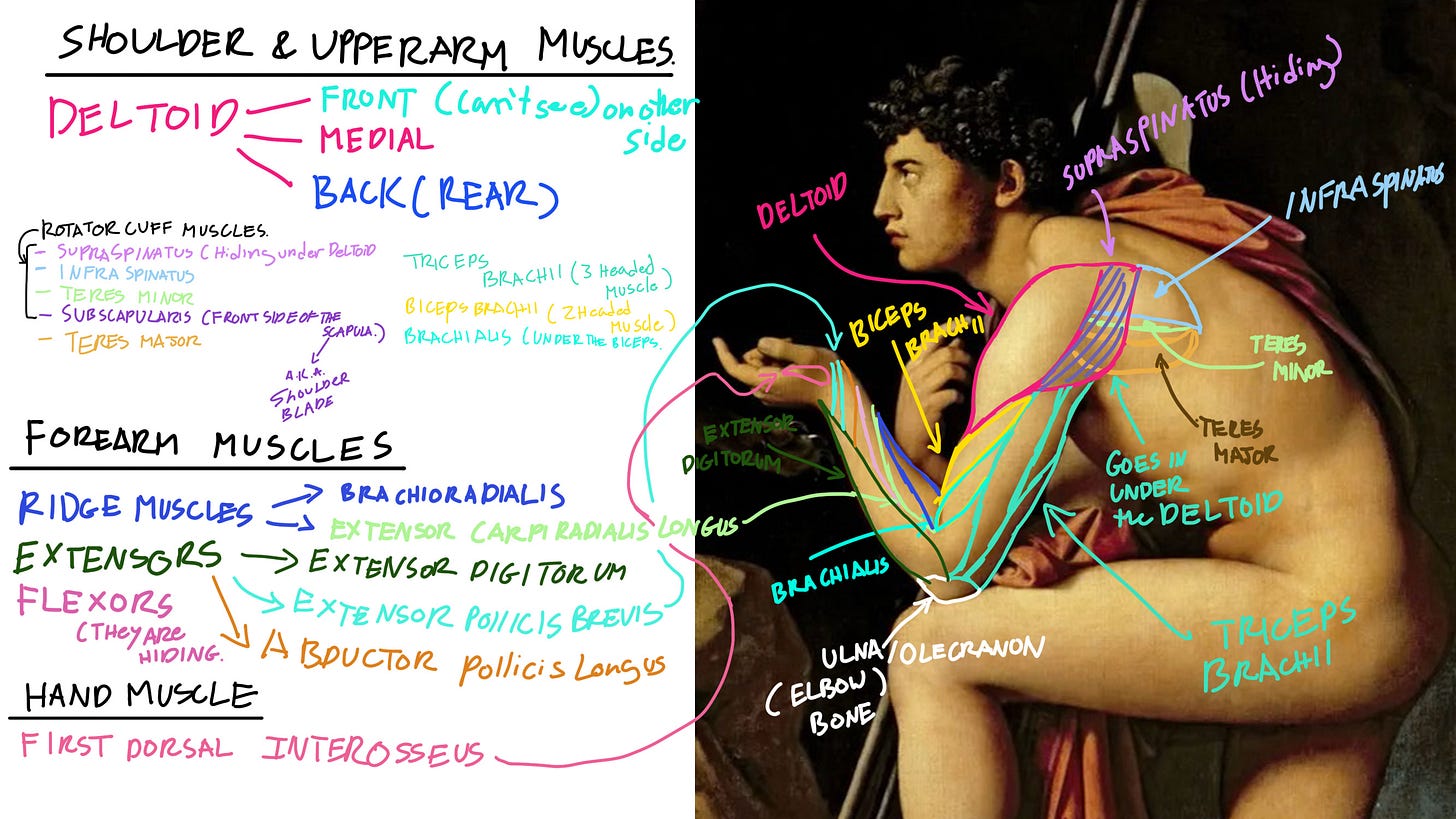 SHOULDER & UPPERARM MUSCLES.
DELTOID
FRONT (Can't see) on other
side
MEDIAL
BACK (REAR)
ROTATOR CUFF MUSCLES.
- SUPRASPINATUS (Hiding under DELTOID
- INFRA SPINATUS
- TERES MINOR
- SUBSCAPULARIS (FRONT SIDE OF THE
SCAPULA.)
- TERES MAJOR
A.K.A.
Shoulder
BLADE
TRICEPS
BRACHII (3 Headed
Muscle)
BICEPS BRACHII (2 Headed
Muscle)
BRACHIALIS (UNDER THE BICEPS.
FOREARM MUSCLES
RIDGE MUSCLES
BRACHIORADIALIS
EXTENSOR CARPI RADIALIS LONGUS
EXTENSORS
EXTENSOR DIGITORUM
FLEXORS
(THey ARE
HIDING.
EXTENSOR POllICIS BREVIS
ABDUCTOR Pollicis Longus
HAND MUSCLE
FIRST DORSAL INTEROSSEUS
SUPRASPINATUS (Hiding)
DELTOID
INFRASPINATUS
BICEPS
BRACHII
TERES
MINOR
EXTENSOR
DIGITORUM
TERES
MAJOR
GOES IN
UNDER
the DELTOID
BRACHIALIS
ULNA/OLECRANON
(ELBOW)
BONE
TRICEPS
BRACHII